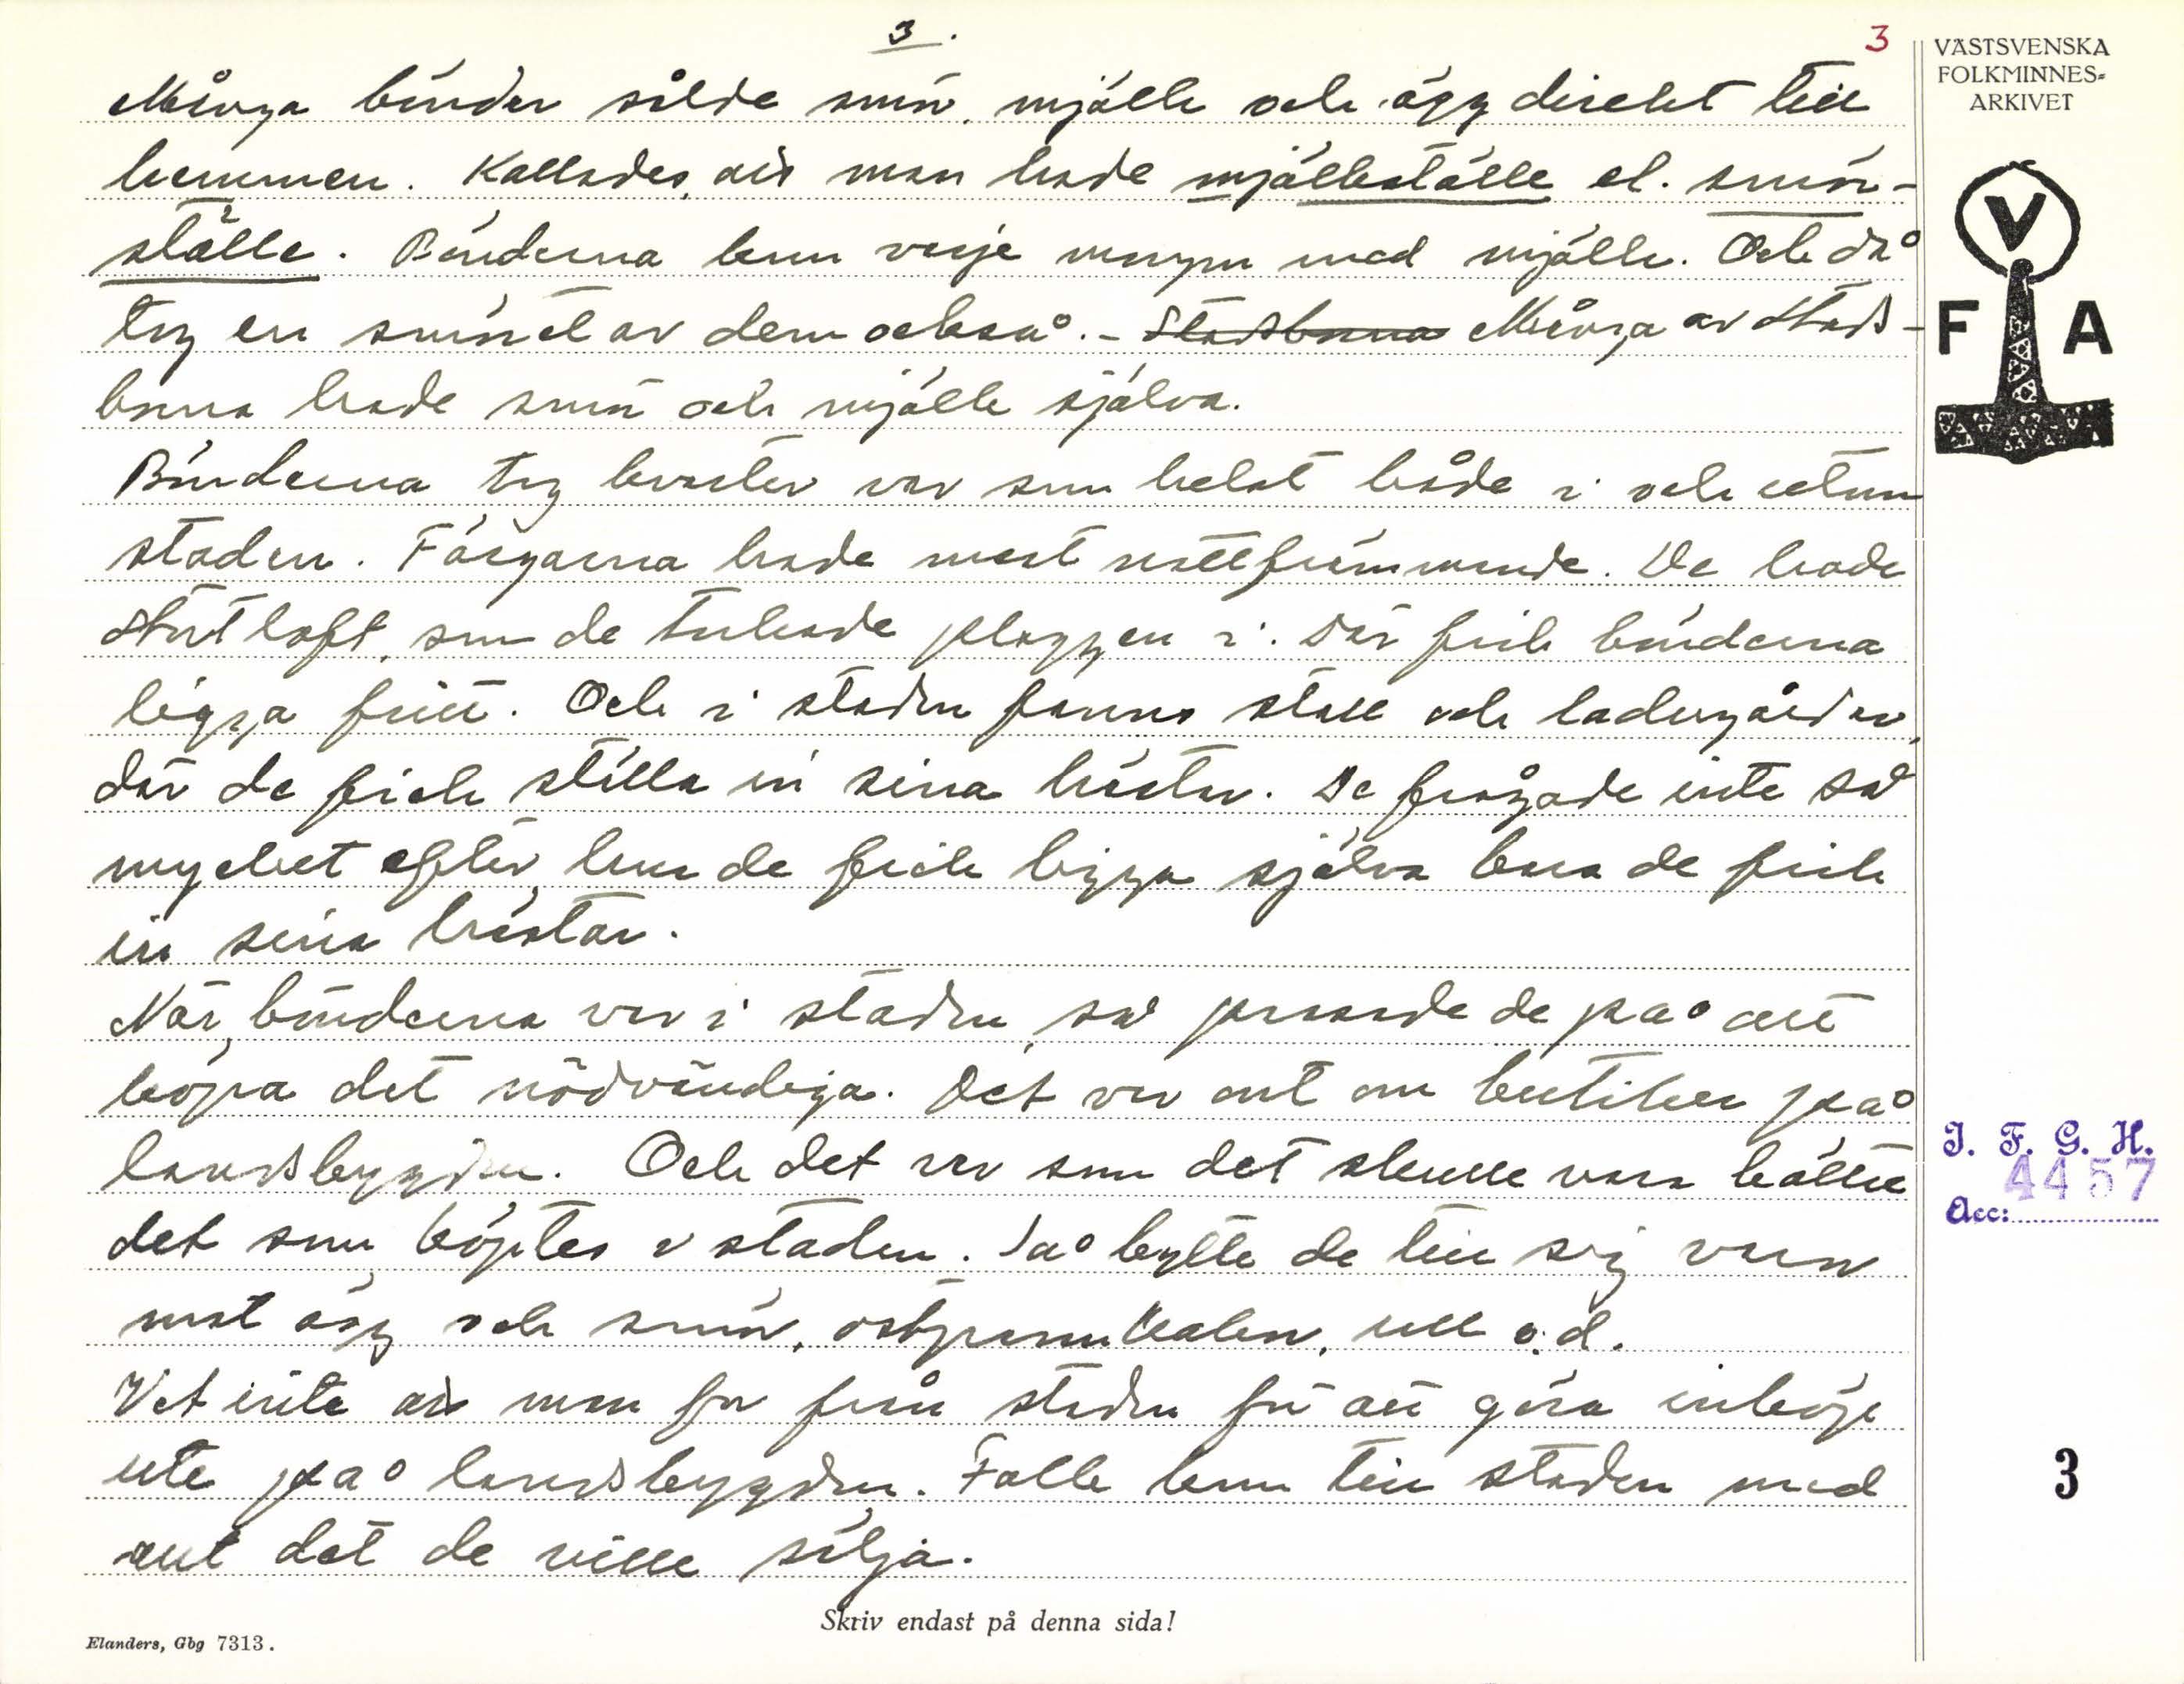 3.
3
Många bönder sålde smör, mjölk och ägg direkt till
hemmen. Kallades, att man hade mjölkställe el. smör-
ställe. Bönderna kom varje morgon med mjölk. Och då
tog en smöret av dem också. - Stadsborna Många av stads-
borna hade smör och mjölk själva.
Bönderna tog kvarter var som helst både i och utom
staden. Färgarna hade mest nattfrämmande. De hade
stort loft, som de torkade plaggen i. Där fick bönderna
ligga fritt. Och i staden fanns stall och ladugårdar,
där de fick ställa in sina hästar. De frågade inte så
mycket efter, hur de fick ligga själva bara de fick
in sina hästar.
När bönderna var i staden, så passade de på att
köpa det nödvändiga. Det var ont om butiker på
landsbygden. Och det var som det skulle vara bättre
det som köptes i staden. Så bytte de till sig varor
mot ägg och smör, ost, ull o.d.
Vet inte att man for från staden för att göra inköp
ute på landsbygden. Folk kom till staden med
allt det de ville sälja.
Skriv endast på denna sida!
Elanders, Gbg 7313.
VÄSTSVENSKA
FOLKMINNES-
ARKIVET
V
F A
I. F. G. H.
4457
Acc:
3